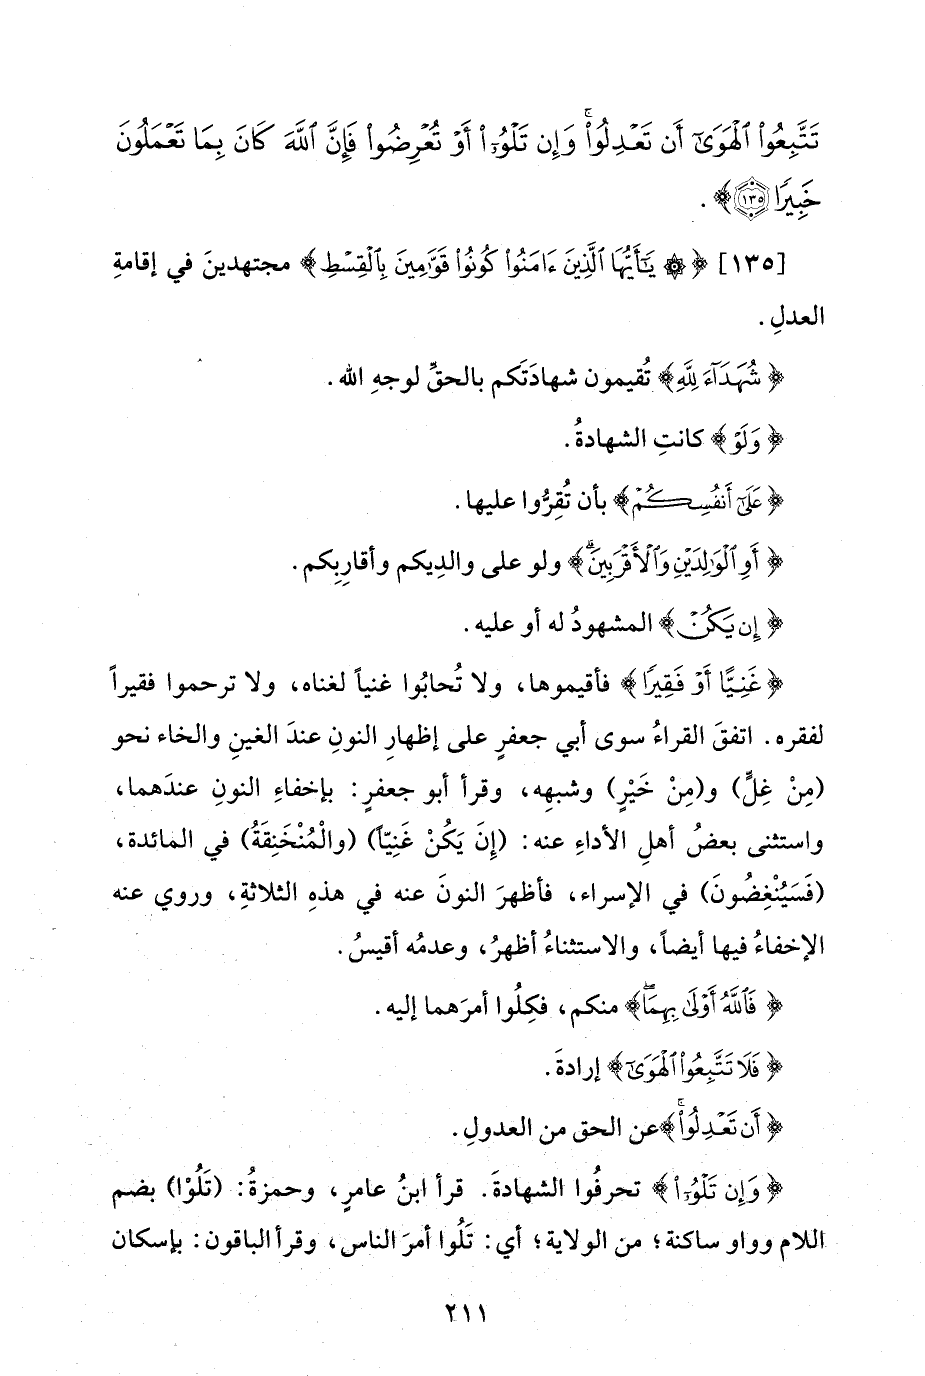 تَتَّبِعُوا۟ ٱلْهَوَىٰٓ أَن تَعْدِلُوا۟ۚ وَإِن تَلْوُۥٓا۟ أَوْ تُعْرِضُوا۟ فَإِنَّ ٱللَّهَ كَانَ بِمَا تَعْمَلُونَ
خَبِيرًا ﴿١٣٥﴾ .
[١٣٥] ﴿ ۞ يَـٰٓأَيُّهَا ٱلَّذِينَ ءَامَنُوا۟ كُونُوا۟ قَوَّٰمِينَ بِٱلْقِسْطِ ﴾ مجتهدينَ في إقامةِ
العدلِ .
﴿ شُهَدَآءَ لِلَّهِ ﴾ تُقيمون شهادَتَكم بالحقِّ لوجهِ الله .
﴿ وَلَوْ ﴾ كانتِ الشهادةُ .
﴿ عَلَىٰٓ أَنفُسِكُمْ ﴾ بأن تُقِرُّوا عليها .
﴿ أَوِ ٱلْوَٰلِدَيْنِ وَٱلْأَقْرَبِينَۗ ﴾ ولو على والدِيكم وأقارِبِكم .
﴿ إِن يَكُنْ ﴾ المشهودُ له أو عليه .
﴿ غَنِيًّا أَوْ فَقِيرًا ﴾ فأقيموها، ولا تُحابُوا غنياً لغناه، ولا ترحموا فقيراً
لفقره. اتفقَ القراءُ سوى أبي جعفرٍ على إظهارِ النونِ عندَ الغينِ والخاء نحو
(مِنْ غِلٍّ) و(مِنْ خَيْرٍ) وشبهِه، وقرأ أبو جعفرٍ: بإخفاءِ النونِ عندَهما،
واستثنى بعضُ أهلِ الأداءِ عنه: (إِنَ يَكُنْ غَنِيّاً) (والْمُنْخَنِقَةُ) في المائدة،
(فَسَيُنْغِضُونَ) في الإسراء، فأظهرَ النونَ عنه في هذهِ الثلاثةِ، وروي عنه
الإخفاءُ فيها أيضاً، والاستثناءُ أظهرُ، وعدمُه أقيسُ .
﴿ فَٱللَّهُ أَوْلَىٰ بِهِمَاۖ ﴾ منكم، فكِلُوا أمرَهما إليه .
﴿ فَلَا تَتَّبِعُوا۟ ٱلْهَوَىٰٓ ﴾ إرادةَ .
﴿ أَن تَعْدِلُوا۟ۚ ﴾ عن الحق من العدولِ .
﴿ وَإِن تَلْوُۥٓا۟ ﴾ تحرفُوا الشهادةَ. قرأ ابنُ عامرٍ، وحمزةُ: (تَلُوْا) بضم
اللام وواو ساكنة؛ من الولاية؛ أي: تَلُوا أمرَ الناس، وقرأ الباقون: بإسكان
٢١١